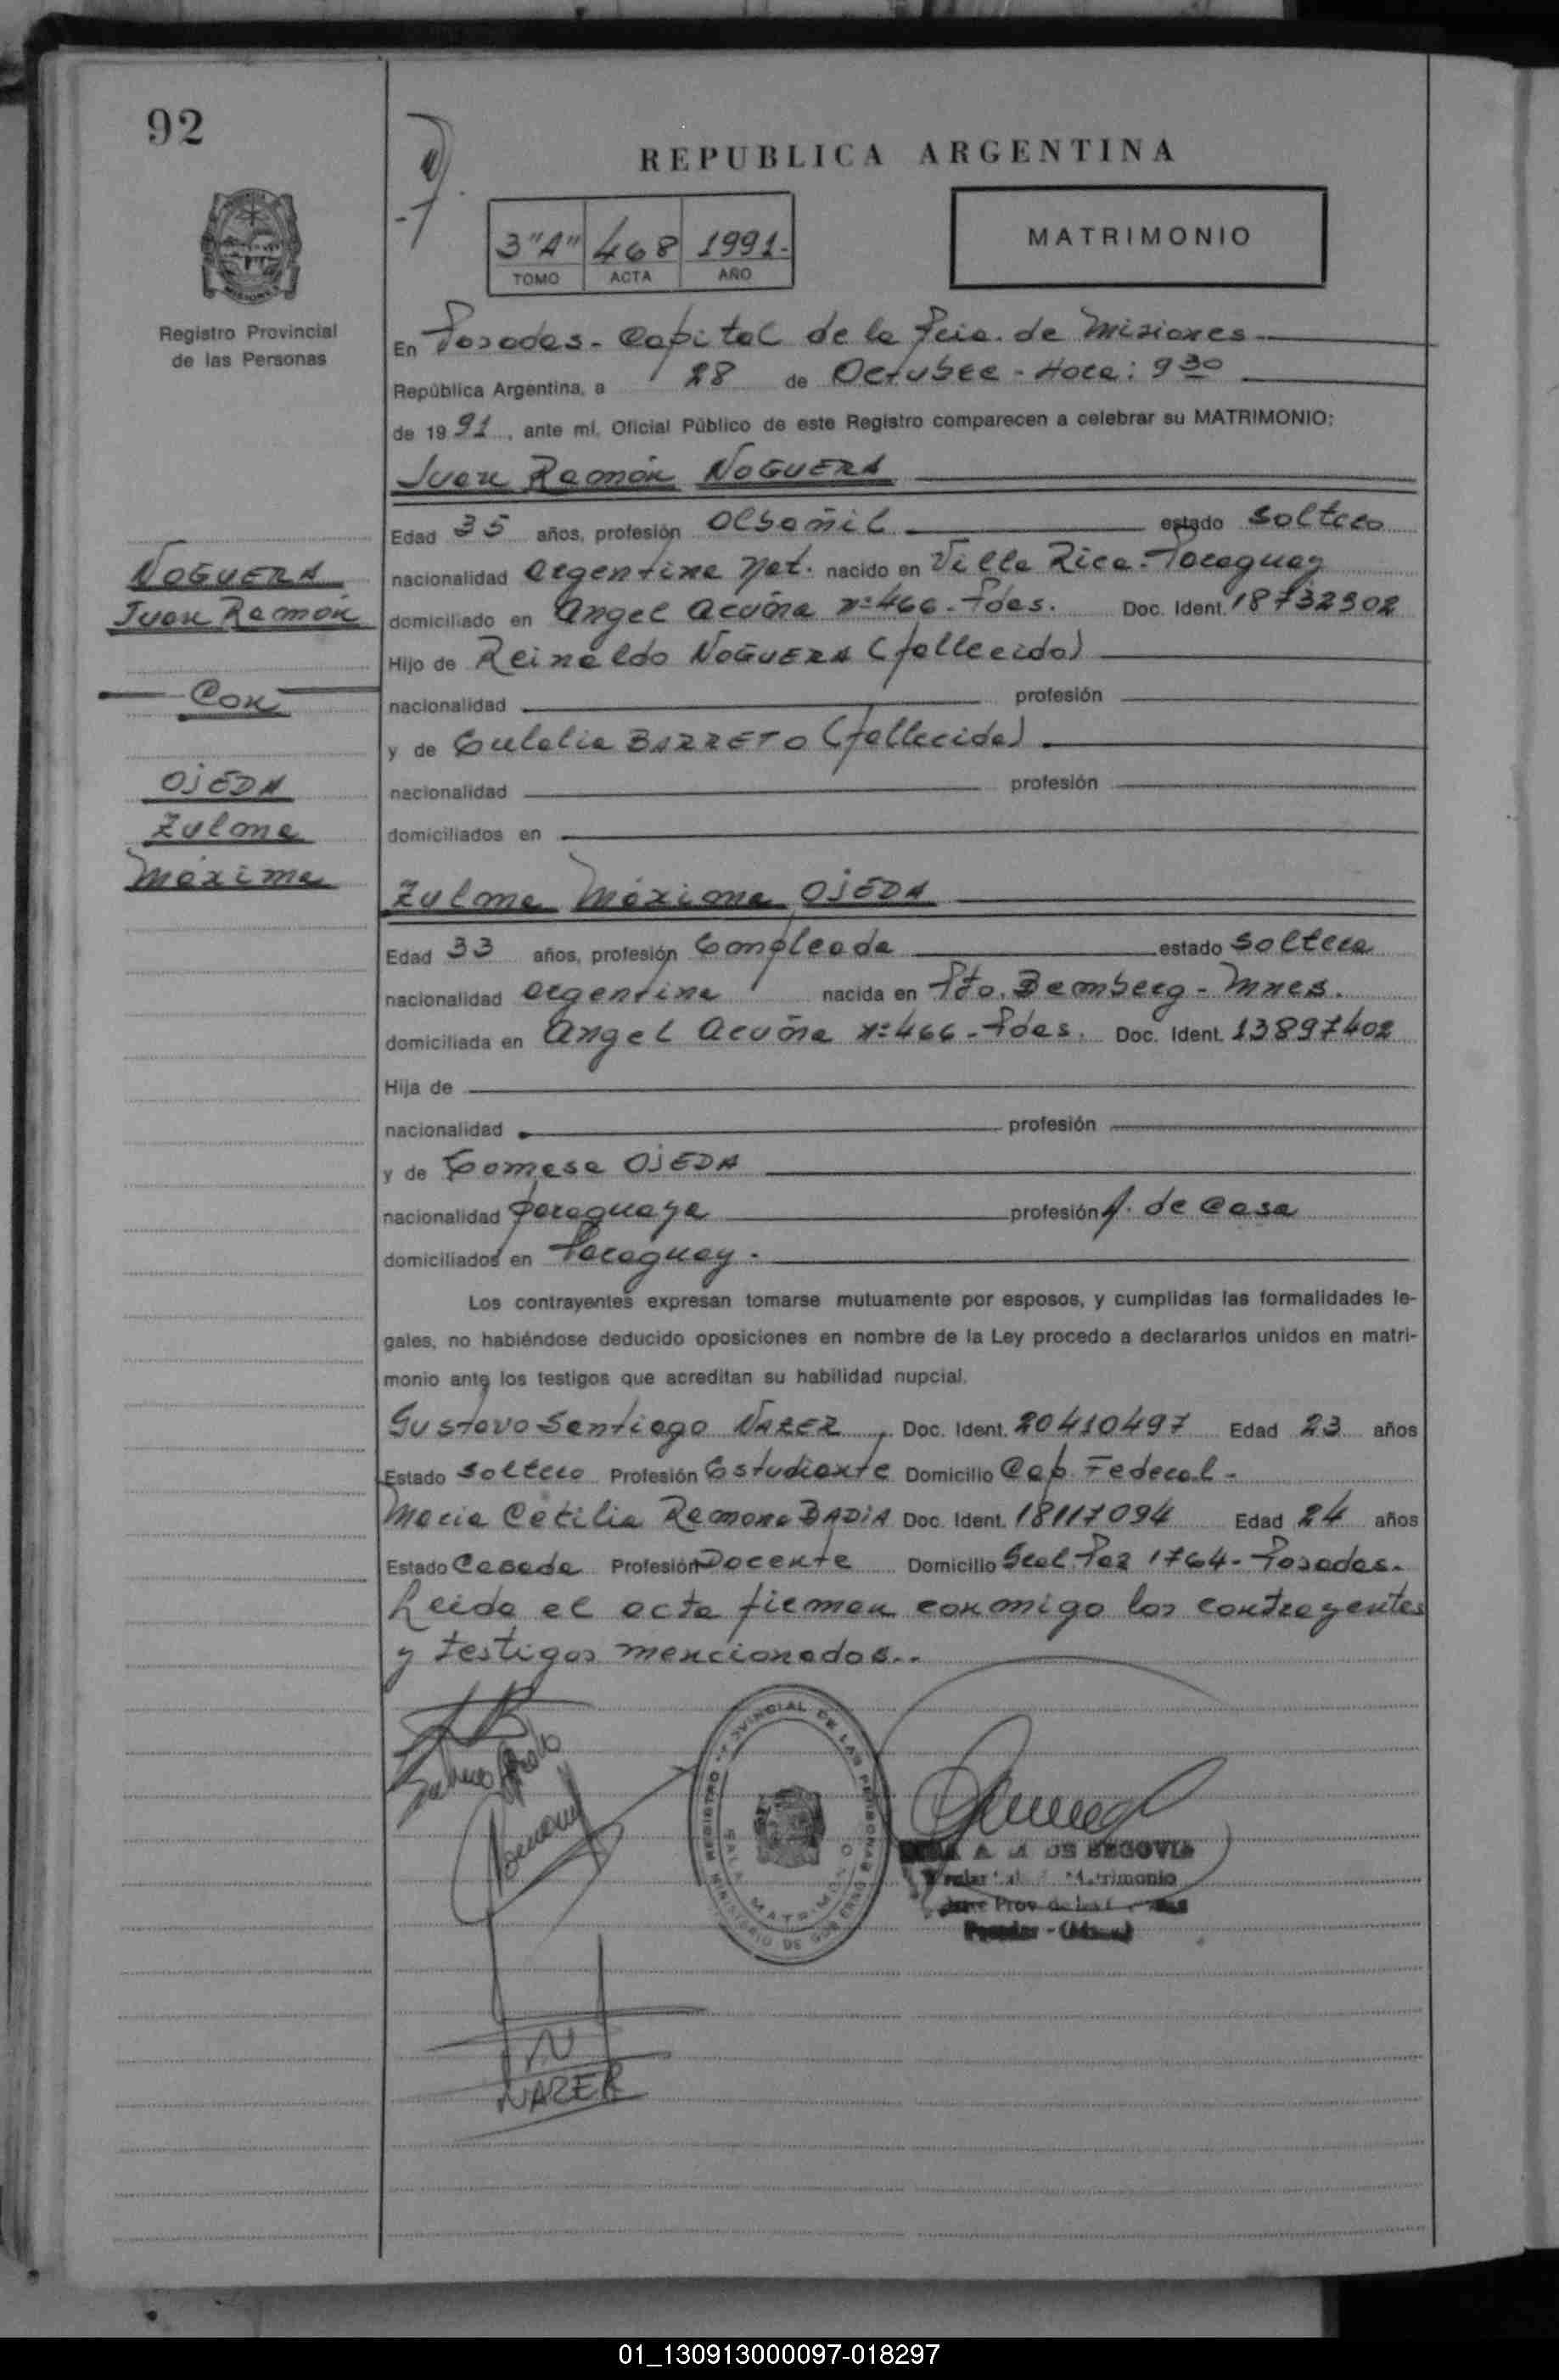 92
REPUBLICA ARGENTINA
MATRIMONIO
3"A" 468 1991.-
TOMO ACTA AÑO
Registro Provincial
de las Personas
En Posadas - Capital de la Pcia. de Misiones
República Argentina, a 28 de Octubre - Hora: 9 30
de 19 91, ante mí, Oficial Público de este Registro comparecen a celebrar su MATRIMONIO:
Juan Ramón NOGUERA
Edad 35 años, profesión Albañil estado soltero
NOGUERA
Juan Ramón
Con
OJEDA
Zulma
Máxima
nacionalidad argentina nat. nacido en Villa Rica - Paraguay
domiciliado en Angel Acuña nº 466 - Pdas. Doc. Ident. 18732902
Hijo de Reinaldo NOGUERA (fallecido)
nacionalidad profesión
y de Eulalia BARRETO (fallecida).
nacionalidad profesión
domiciliados en
Zulma Máxima OJEDA
Edad 33 años, profesión Empleada estado soltera
nacionalidad argentina nacida en Pto. Bemberg - Mnes.
domiciliada en Angel Acuña nº 466 - Pdas. Doc. Ident. 13897402
Hija de
nacionalidad profesión
y de Tomasa OJEDA
nacionalidad paraguaya profesión A. de casa
domiciliados en Paraguay.
Los contrayentes expresan tomarse mutuamente por esposos, y cumplidas las formalidades le-
gales, no habiéndose deducido oposiciones en nombre de la Ley procedo a declararlos unidos en matri-
monio ante los testigos que acreditan su habilidad nupcial.
Gustavo Santiago NAZER, Doc. Ident. 20410497 Edad 23 años
Estado soltero Profesión Estudiante Domicilio Cap. Federal -
Maria Cecilia Ramona BADIA Doc. Ident. 18117094 Edad 24 años
Estado Casada Profesión Docente Domicilio Gral. Paz 1764 - Posadas.
Leida el acta firman conmigo los contrayentes
y testigos mencionados..
REGISTRO PROVINCIAL DE LAS PERSONAS
MINISTERIO DE GOBIERNO
SALA MATRIMONIO
DE SEGOVIA
Matrimonio
Prov
Posadas - (Mnes)
N
NAZER
01_130913000097-018297